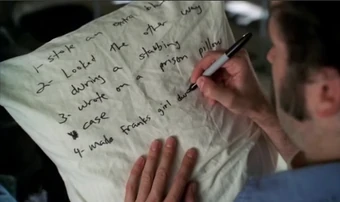 1- State can enter
2- Looked the other way
during a stabbing
3. wrote on a prison pillow
case
4. make Franks girl